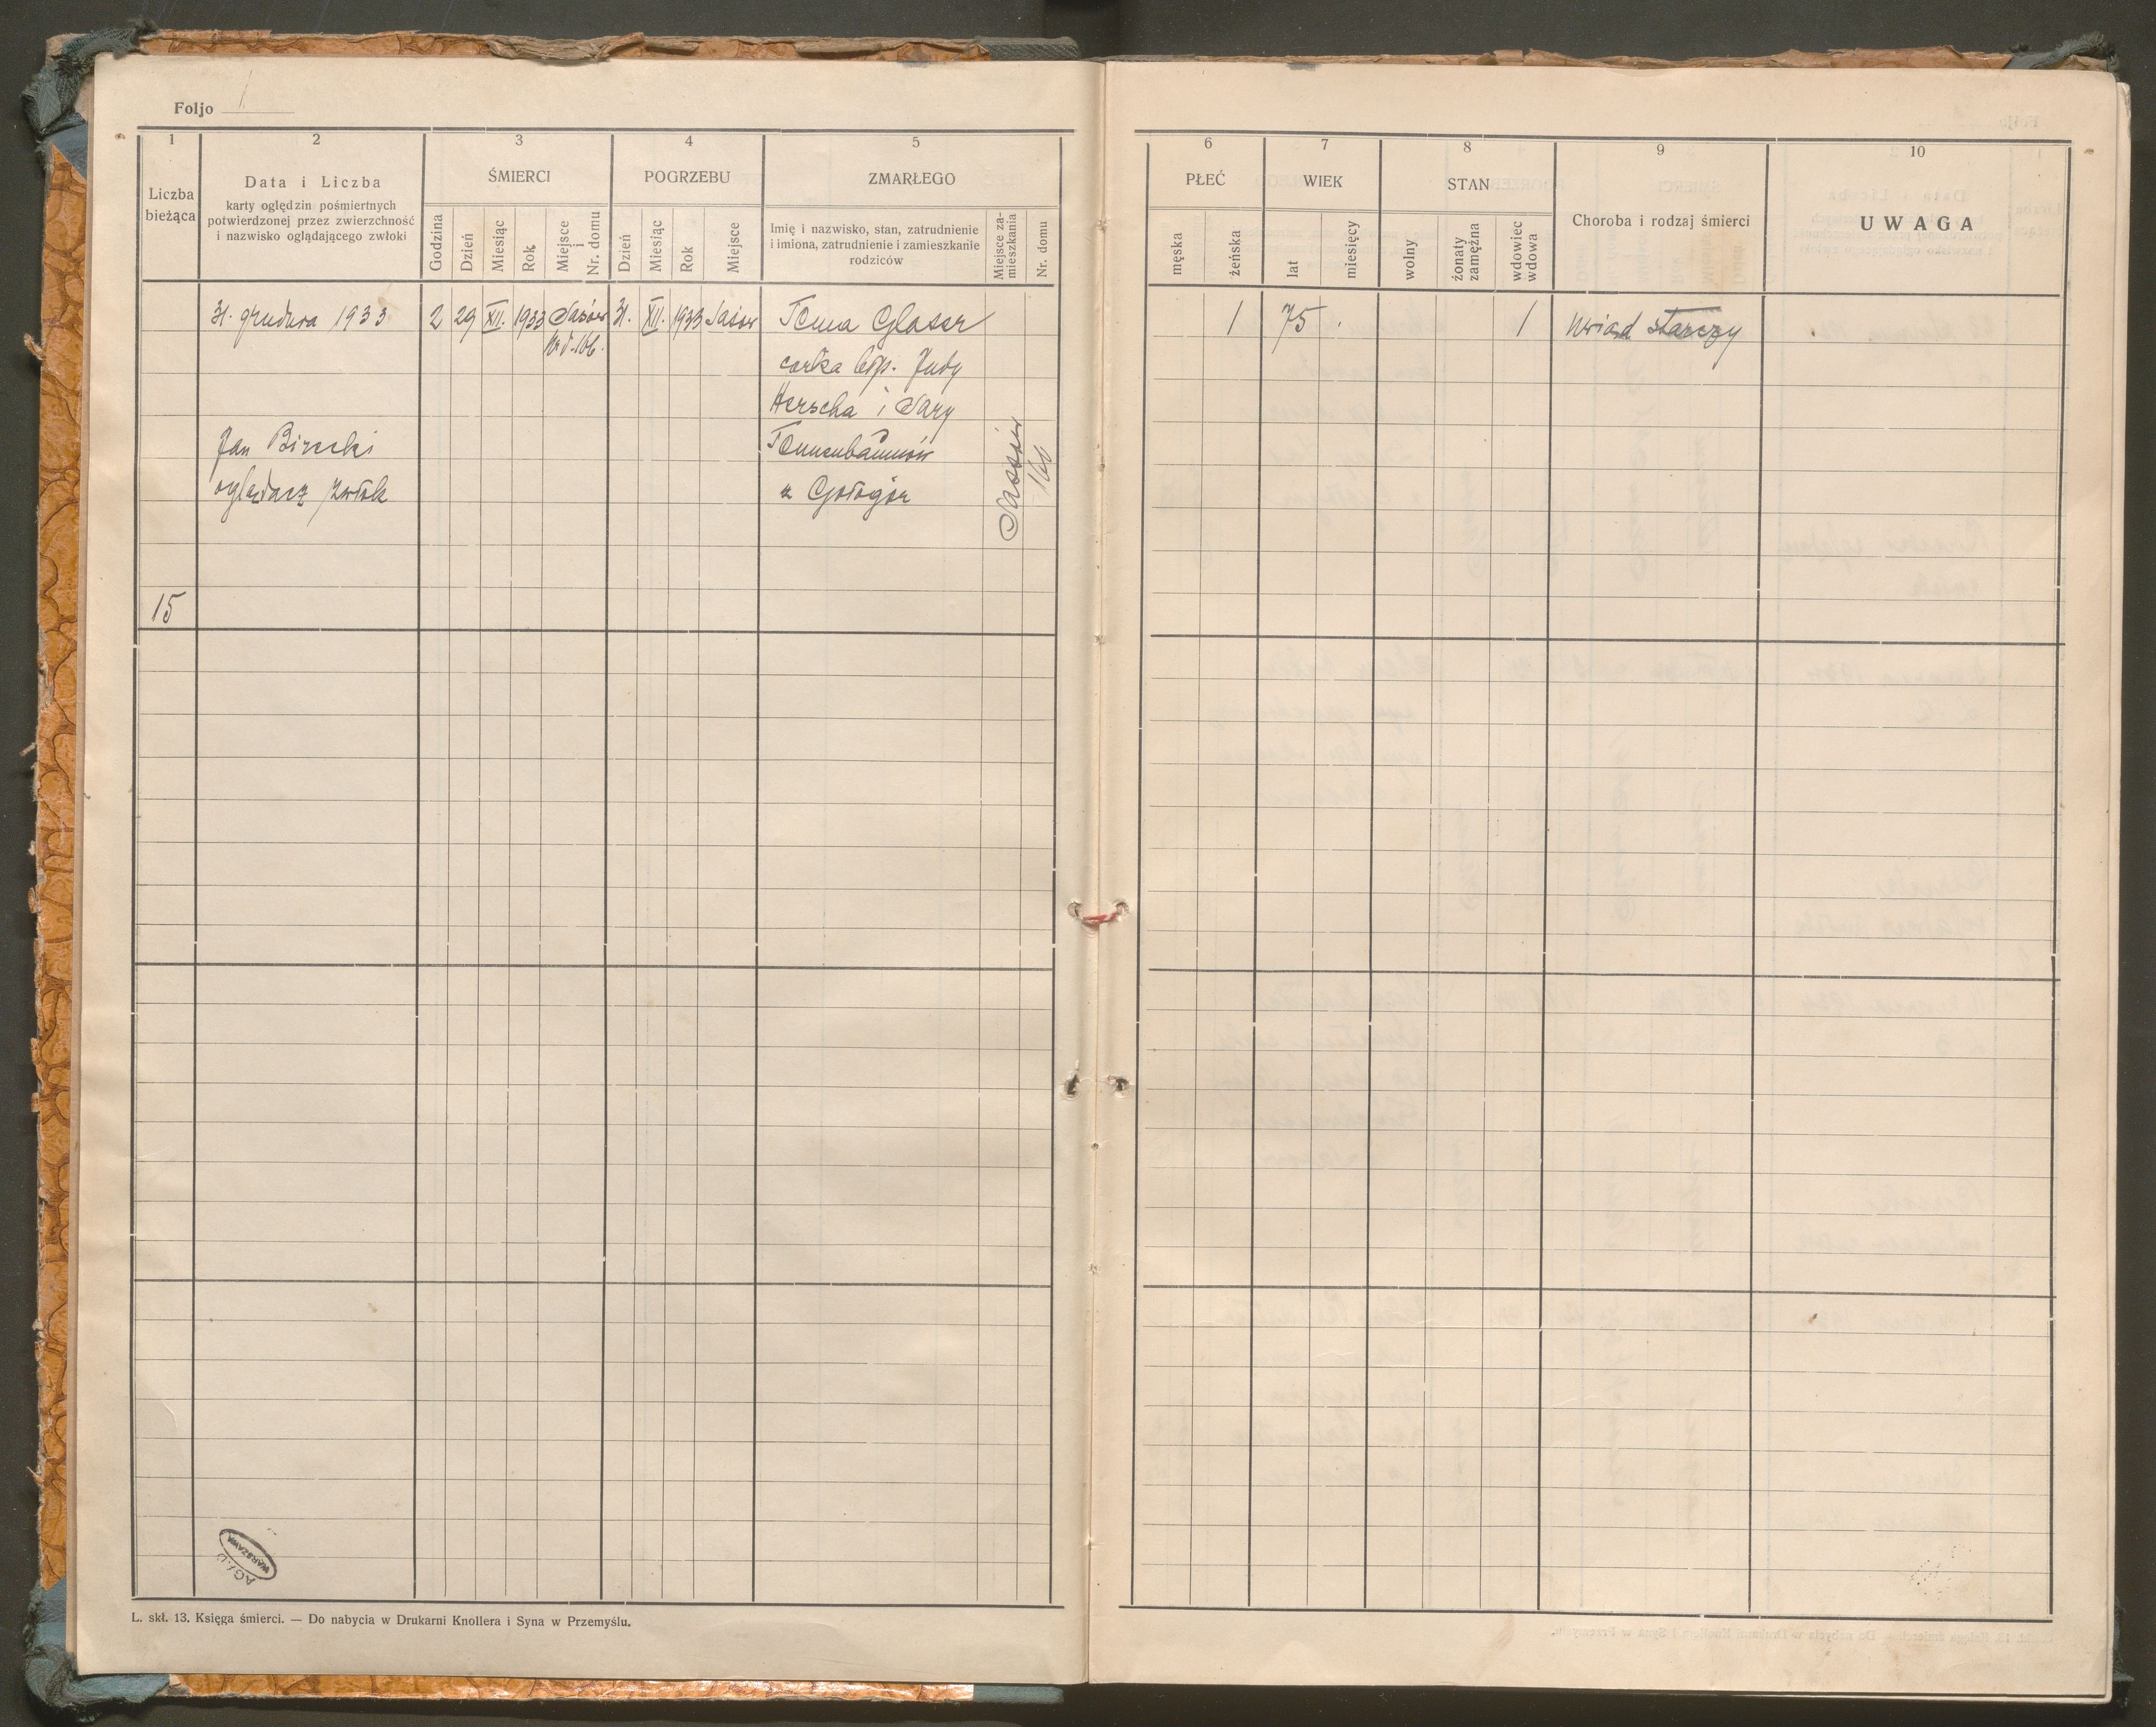 Foljo 1
1 2 3 4 5
Liczba bieżąca
Data i Liczba
karty oględzin pośmiertnych
potwierdzonej przez zwierzchność
i nazwisko oglądającego zwłoki
ŚMIERCI
Godzina
Dzień
Miesiąc
Rok
Miejsce i Nr. domu
POGRZEBU
Dzień
Miesiąc
Rok
Miejsce
ZMARŁEGO
Imię i nazwisko, stan, zatrudnienie
i imiona, zatrudnienie i zamieszkanie
rodziców
Miejsce za-
mieszkania
Nr. domu
31. grudnia 1933 2 29 XII. 1933 Sasów 31. XII. 1933 Sasów
Glaser
córka Judy
Herscha i Sary
Jan Birecki
oglądacz zwłok
z Gołogór
Sassów
166
15
WARSZAWA
L. skł. 13. Księga śmierci. — Do nabycia w Drukarni Knollera i Syna w Przemyślu.
6 7 8 9 10
PŁEĆ
męska
żeńska
WIEK
lat
miesięcy
STAN
wolny
żonaty
zamężna
wdowiec
wdowa
Choroba i rodzaj śmierci
UWAGA
1 75 1 uwiąd starczy